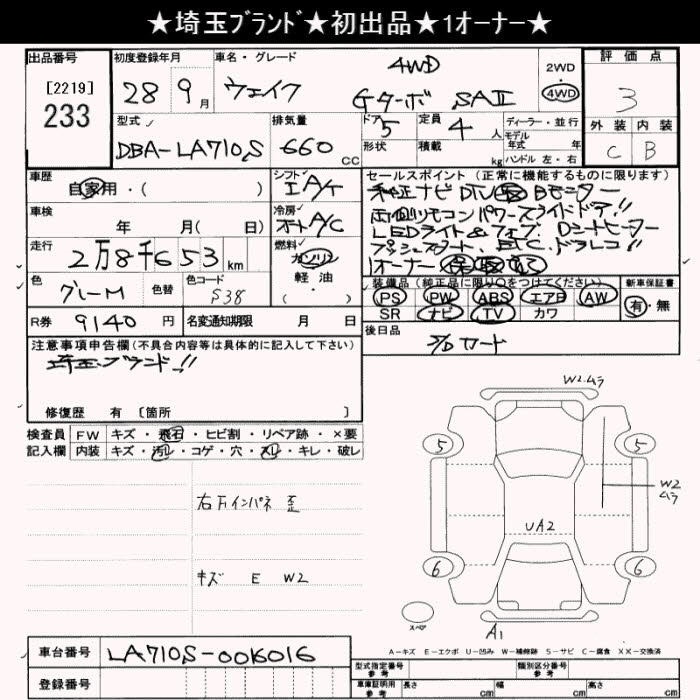 ★埼玉ﾌﾞﾗﾝﾄﾞ★初出品★1オーナー★
出品番号
[2219]
233
初度登録年月
28 9月
車名・グレード
ウェイク 4WD Gターボ SAⅡ
2WD・4WD
評価点
3
外装 内装
C B
型式
DBA-LA710S
排気量
660 CC
ドア 5
形状
定員 4人
積載 kg
ディーラー・並行
モデル年式 年
ハンドル 左・右
車歴
自家用・( )
シフト
IA/T
セールスポイント(正常に機能するものに限ります)
純正ナビ DTV Bモニター
両側リモコンパワースライドドア!!
LEDライト&フォグ Dシートヒーター
プッシュスタート、ETC、ドラレコ!!
1オーナー 保 取
車検
年 月(日)
冷房
オートA/C
走行
2万8千653km
燃料
ガソリン
軽油
・( )
色
グレーM
色替
色コード
S38
装備品(純正品に限り〇をつけてください)
PS PW ABS エアB AW
SR ナビ TV カワ
新車保証書
有・無
R券 9140円
名変通知期限 月 日
後日品
S/Dカード
注意事項申告欄(不具合内容等は具体的に記入して下さい)
埼玉ブランド!!
修復歴 有 [箇所 ]
検査員 FW キズ・飛石・ヒビ割・リペア跡・×要
記入欄 内装 キズ・汚レ・コゲ・穴・スレ・キレ・破レ
右万インパネ 歪
キズ E W2
W2.ムラ
5 5
W2
ムラ
UA2
6 6
スペア
A1
A-キズ E-エクボ U-凹み W-補修跡 S-サビ C-腐食 XX-交換済
車台番号 LA710S-0016016
登録番号
型式指定番号 参考
類別区分番号 参考
車庫証明用 参考 長さ cm 幅 cm 高さ cm